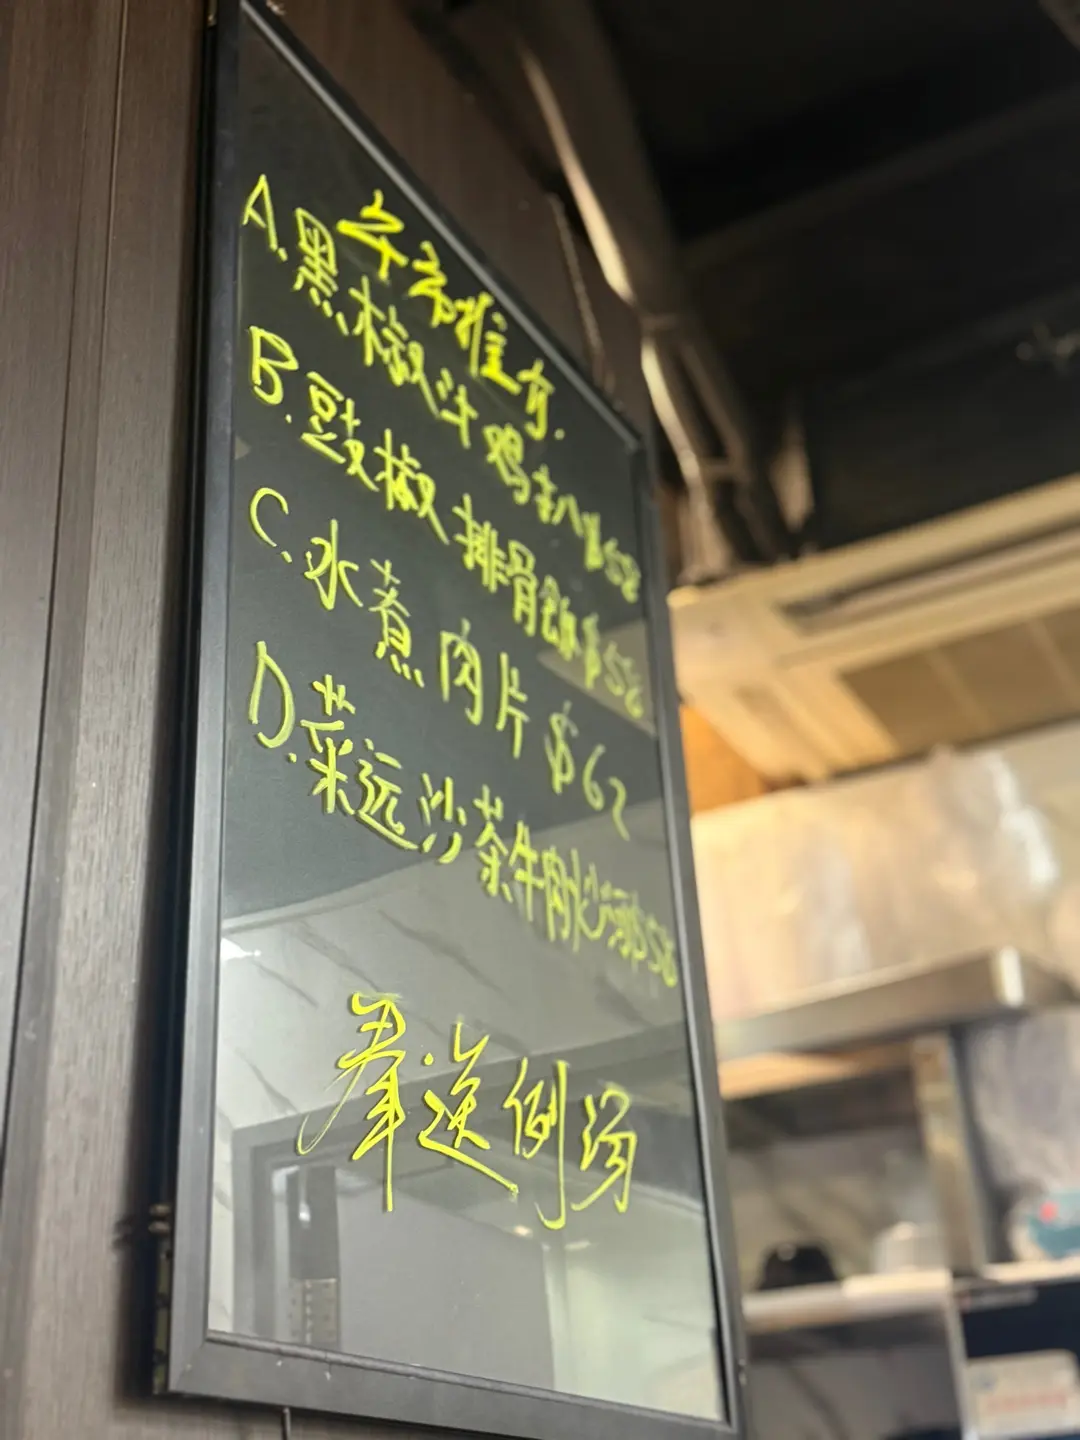 午市推介.
A.黑椒汁鸡扒 $58
B.豉椒排骨 $58
C.水煮肉片 $62
D.菜远沙茶牛肉炒河 $58
送例汤